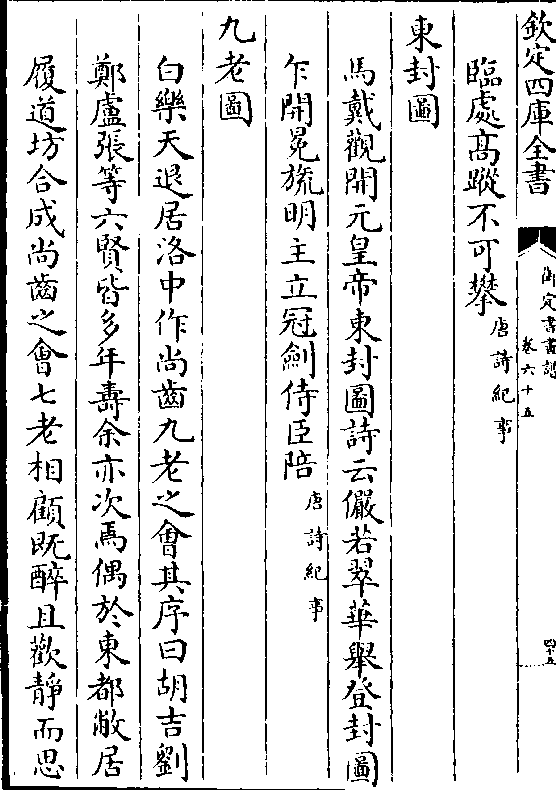 欽定四庫全書
御定書畫譜
卷六十五
四十五
臨處髙蹤不可攀唐詩紀事
東封圖
馬戴觀開元皇帝東封圖詩云儼若翠華舉登封圖
乍開冕旒明主立冠劍侍臣陪唐詩紀事
九老圖
白樂天退居洛中作尚齒九老之會其序曰胡吉劉
鄭盧張等六賢皆多年壽余亦次焉偶於東都敝居
履道坊合成尚齒之會七老相顧既醉且歡静而思